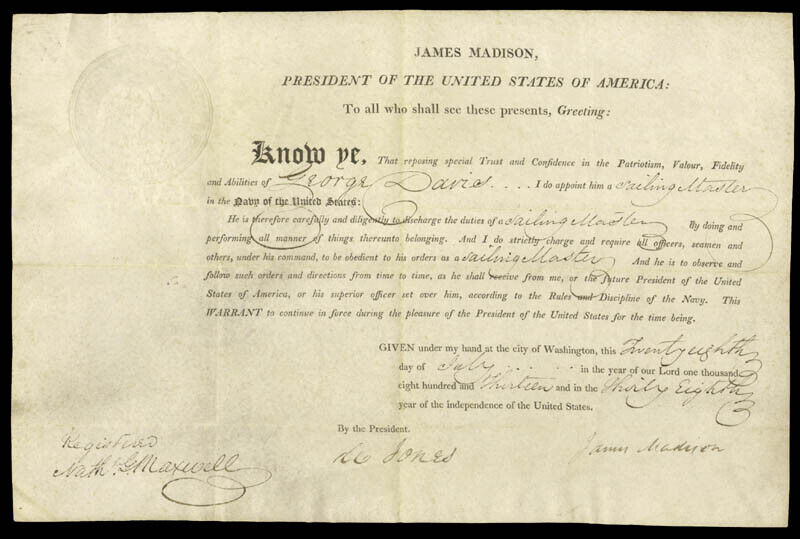 JAMES MADISON,
PRESIDENT OF THE UNITED STATES OF AMERICA:
To all who shall see these presents, Greeting:
Know ye, That reposing special Trust and Confidence in the Patriotism, Valour, Fidelity
and Abilities of George Davis .... I do appoint him a Sailing Master
in the Navy of the United States:
He is therefore carefully and diligently to discharge the duties of a Sailing Master By doing and
performing all manner of things thereunto belonging. And I do strictly charge and require all officers, seamen and
others, under his command, to be obedient to his orders as a Sailing Master And he is to observe and
follow such orders and directions from time to time, as he shall receive from me, or the future President of the United
States of America, or his superior officer set over him, according to the Rules and Discipline of the Navy. This
WARRANT to continue in force during the pleasure of the President of the United States for the time being.
GIVEN under my hand at the city of Washington, this Twenty eighth
day of July ..... in the year of our Lord one thousand
eight hundred and thirteen and in the Thirty Eighth
year of the independence of the United States.
By the President.
Registered
Nath. G. Maxwell
Jones
James Madison